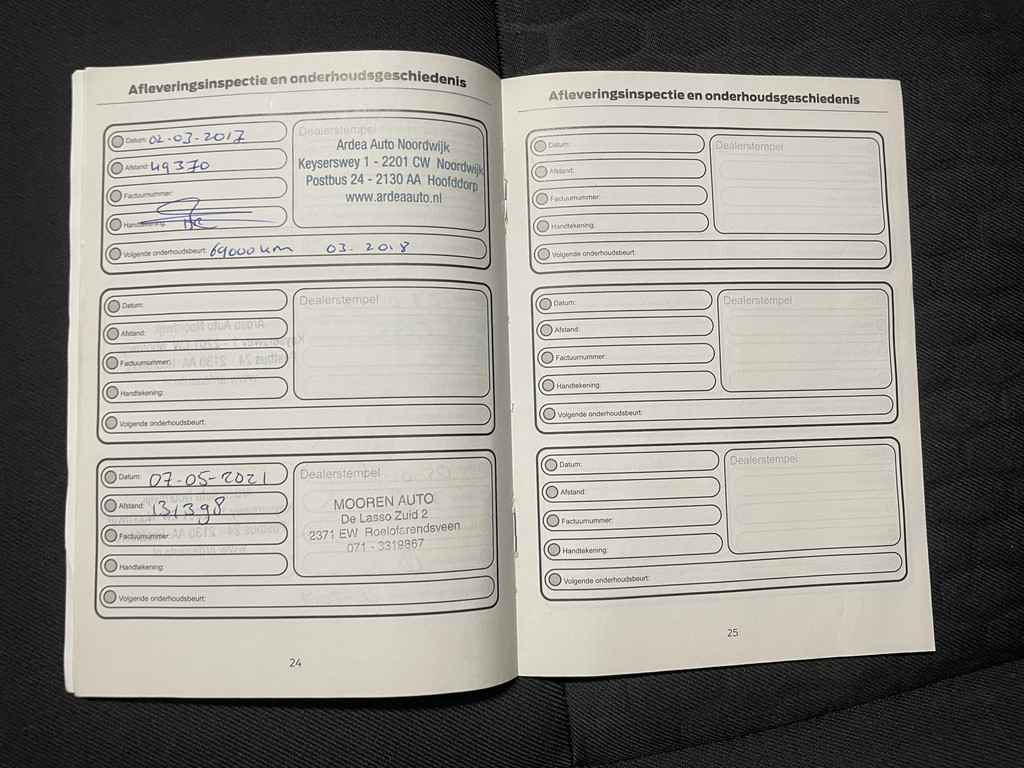 Afleveringsinspectie en onderhoudsgeschiedenis
Datum: 02-03-2017
Afstand: 49370
Factuurnummer:
Handtekening:
Dealerstempel
Ardea Auto Noordwijk
Keyserswey 1 - 2201 CW Noordwijk
Postbus 24 - 2130 AA Hoofddorp
www.ardeaauto.nl
Volgende onderhoudsbeurt: 69000 km 03. 2018
Datum:
Afstand:
Factuurnummer:
Handtekening:
Dealerstempel
Volgende onderhoudsbeurt:
Datum: 07-05-2021
Afstand: 131398
Factuurnummer:
Handtekening:
Dealerstempel
MOOREN AUTO
De Lasso Zuid 2
2371 EW Roelofarendsveen
071 - 3319867
Volgende onderhoudsbeurt:
24
Afleveringsinspectie en onderhoudsgeschiedenis
Datum:
Afstand:
Factuurnummer:
Handtekening:
Dealerstempel
Volgende onderhoudsbeurt:
Datum:
Afstand:
Factuurnummer:
Handtekening:
Dealerstempel
Volgende onderhoudsbeurt:
Datum:
Afstand:
Factuurnummer:
Handtekening:
Dealerstempel
Volgende onderhoudsbeurt:
25